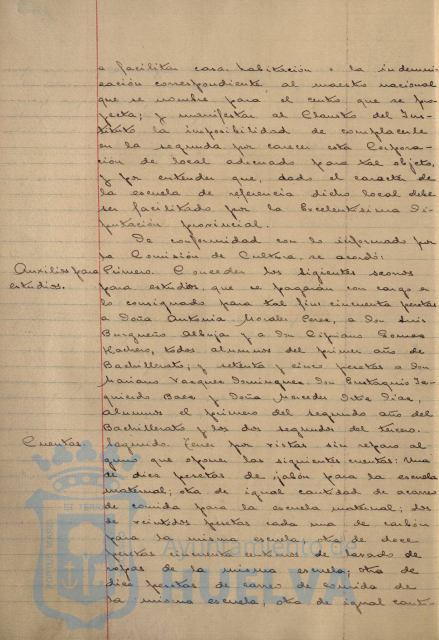 a facilitar casa-habitación o la indemni-
zación correspondiente al maestro nacional
que se nombre para el centro que se pro-
yecta; y manifestar al Claustro del Ins-
tituto la imposibilidad de complacerle
en la segunda por carecer esta Corpora-
ción de local adecuado para tal objeto,
y por entender que, dado el caracter de
la escuela de referencia dicho local debe
ser facilitado por la Excelentísima Di-
putación provincial.
De conformidad con lo informado por
la Comisión de Cultura, se acordó:
Auxilios para estudios.
Primero. Conceder los siguientes socorros
para estudios, que se pagarán con cargo a
lo consignado para tal fin: cincuenta pesetas
a Doña Antonia Morales Perez, a don Luis
Burgueño Albuja y a don Cipriano Gomez
todos alumnos del primer año de
Bachillerato; y setenta y cinco pesetas a don
Mariano Vazquez Dominguez, don Eustaquio Iz-
quierdo Baez y Doña Mercedes Diaz,
alumnos el primero del segundo año del
Bachillerato y los dos segundos del tercero.
Cuentas.
Segundo. Tener por vistas sin reparo al-
guno que oponer las siguientes cuentas: Una
de diez pesetas de jabón para la escuela
maternal; otra de igual cantidad de acarreo
de comida para la escuela maternal; dos
de veintidos pesetas cada una de carbón
para la misma escuela; otra de doce
pesetas cincuenta céntimos de lavado de
ropas de la misma escuela; otra de
diez pesetas de carreo de comida de
la misma escuela; otra de igual canti-
Ayuntamiento de
HUELVA